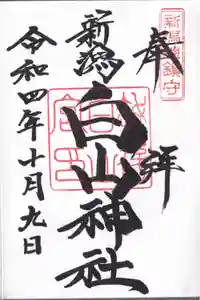 奉拝
新潟総鎮守
新潟
白山神社
令和四年十月九日